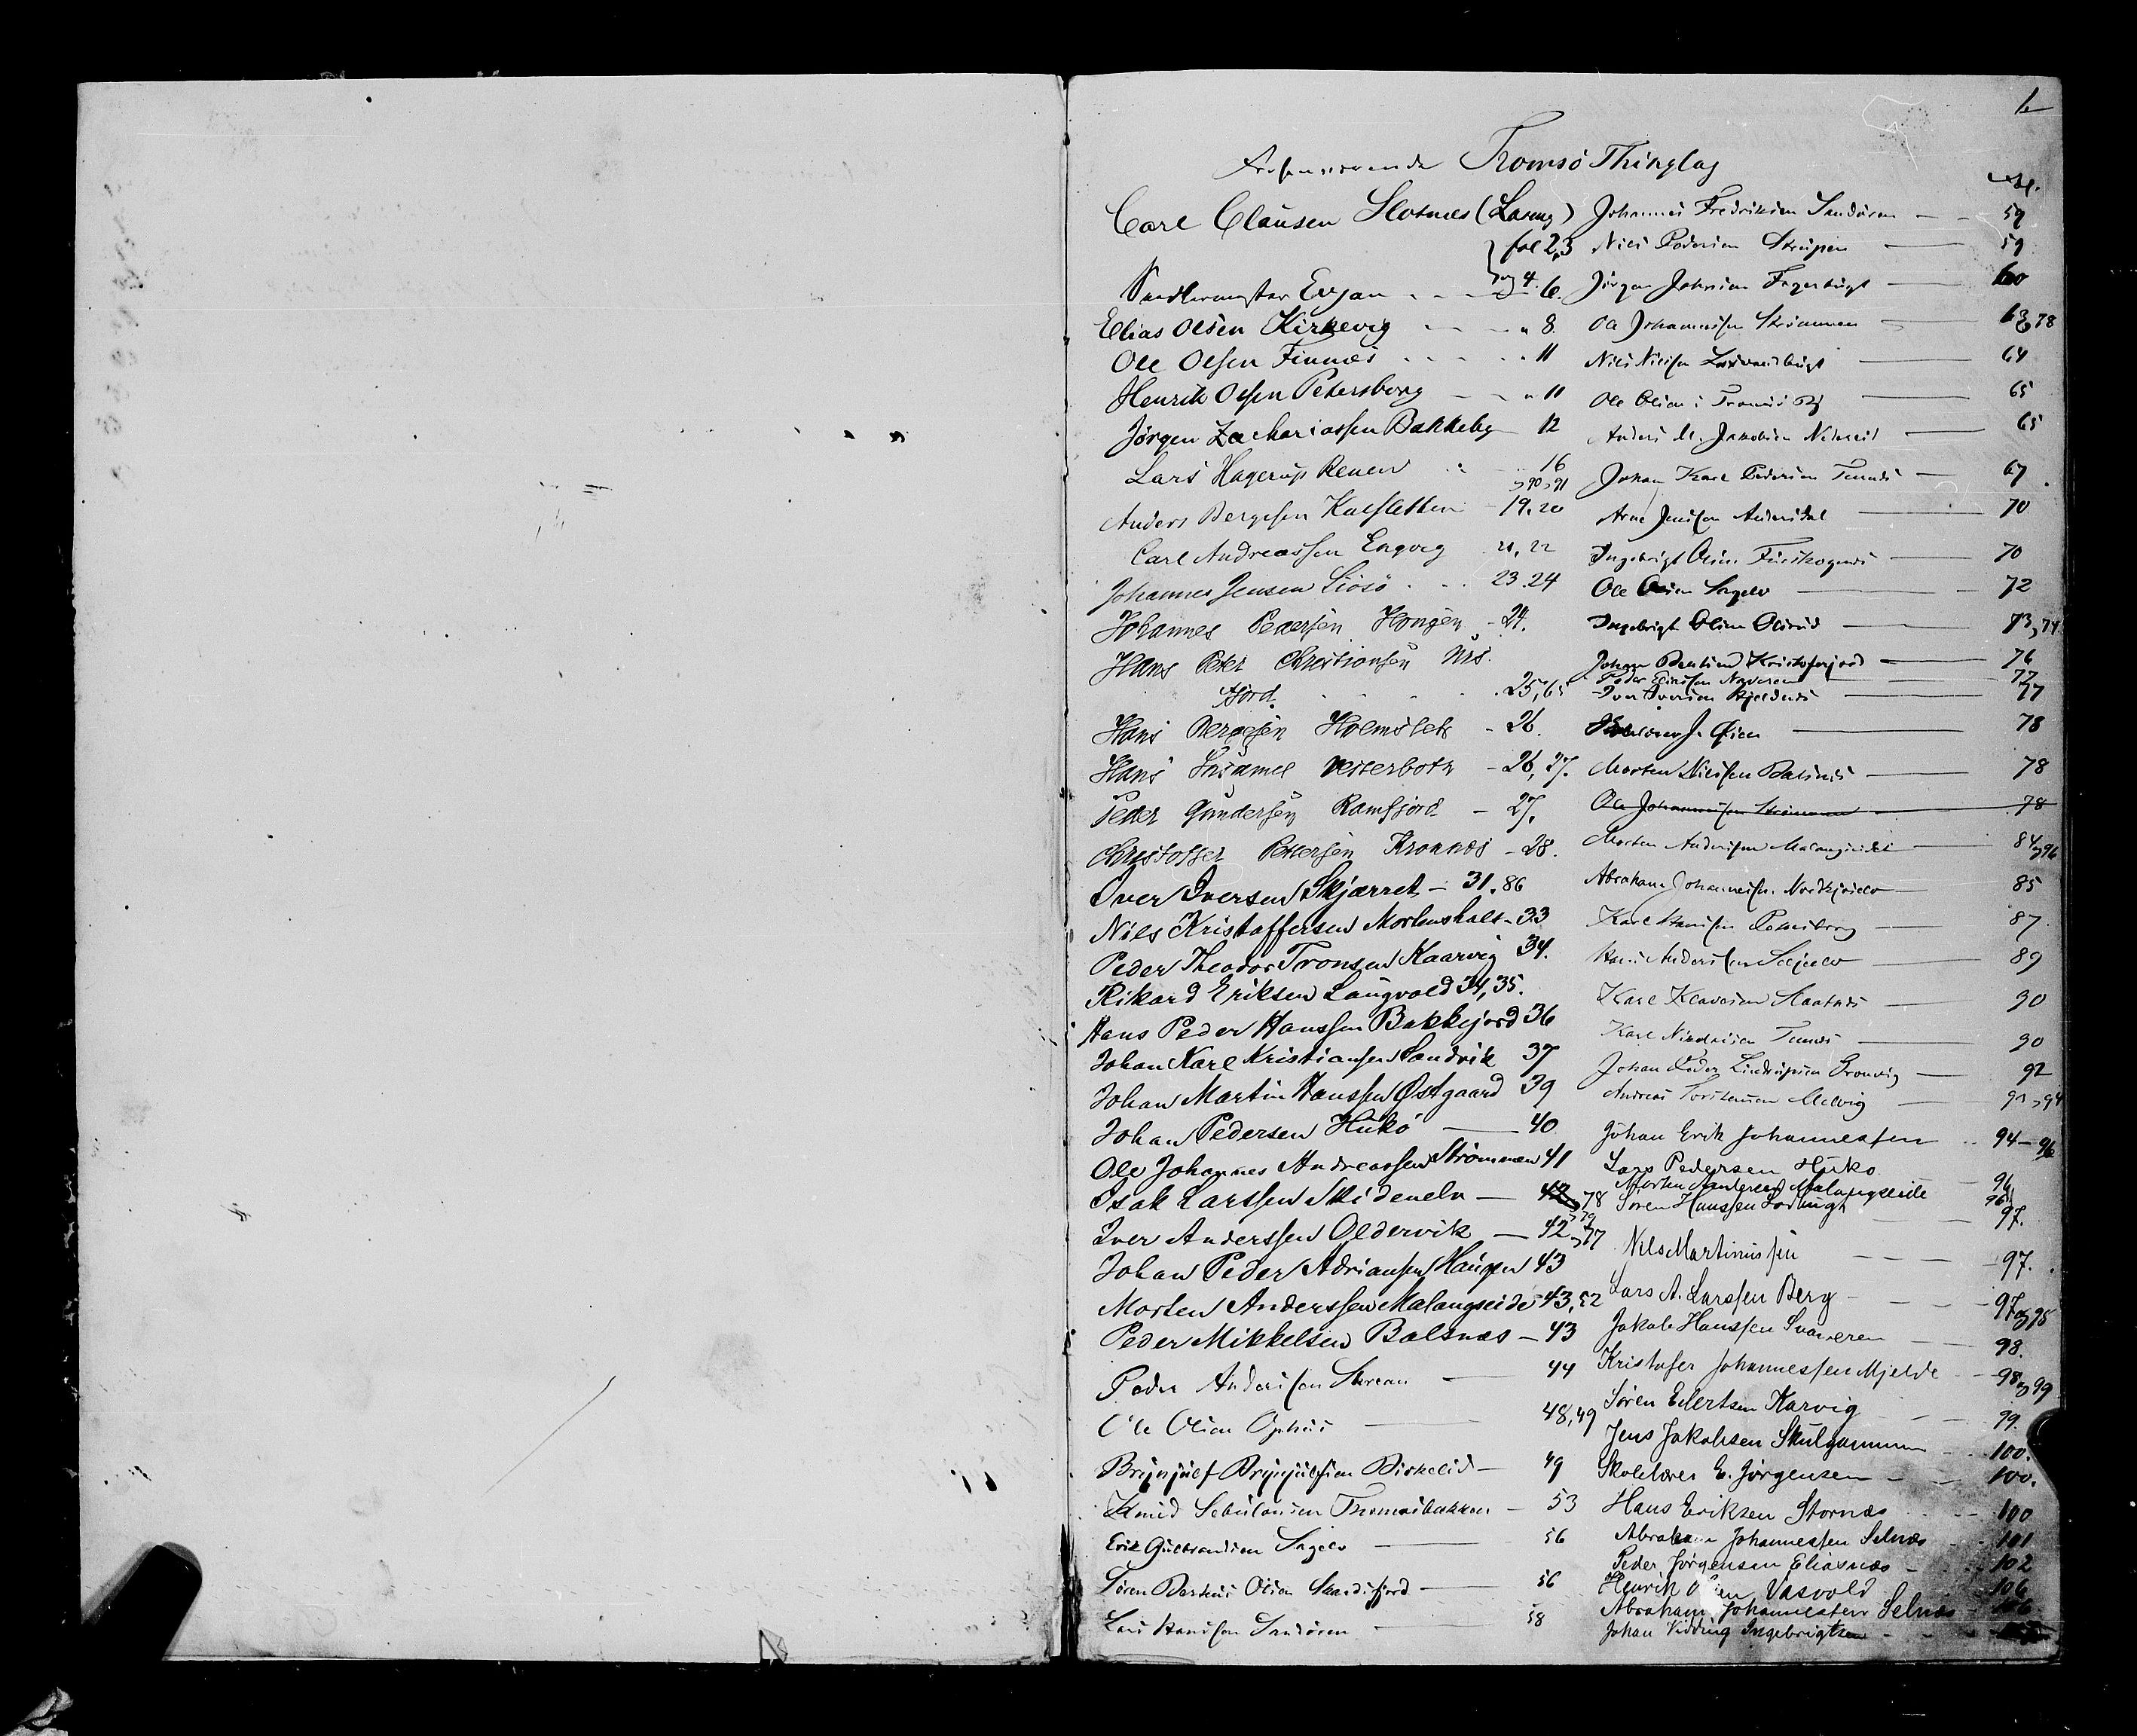 1
Tromsö Thinglag
Carl Clausen Slotnæs
fol 2,3
og 4. 6.
Elias Olsen Kirkevig " 8.
Ole Olsen Finnæs " 11
Henrik Olsen Petersborg " 11
Jörgen Zachariassen Bakkeby 12
Lars Hagerup Renen 16
, 90, 91
Anders Bergesen Kalsletten 19. 20
Carl Andreassen Engvig 21, 22
Johannes Jensen Liösö 23. 24
Johannes Pedersen Haugen - 24.
Hans Peter Christiansen
fjord. 25, 65
Hans Bergesen Holmslet - 26.
Hans Vesterbotn - 26, 27.
Peder Gundersen Ramfjord - 27.
Christoffer Pettersen Kroknæs - 28.
Iver Iversen Skjærret - 31. 86
Nils Kristoffersen Mortenshals - 33
Peder Theodor Tronsen Kaarvig 34.
Rikard Eriksen Laugvold 34, 35.
Hans Peder Hanssen Bakkejord 36
Johan Karl Kristiansen Sandvik 37
Johan Martin Hanssen Østgaard 39
Johan Pedersen Hukö 40
Ole Johannes Andreassen Strømmen 41
Isak Larssen Skidenelv 42, 78
, 79
Iver Anderssen Oldervik 42, 77
Johan Peder Adriansen Haugen 43
Morten Anderssen Malangseide 43, 52
Peder Mikkelsen Balsnæs - 43
Peder Andersen 44
Ole Olsen Ophus 48, 49
Brynjulf Brynjulfsen Birkelid - 49
Knud Thomasbakken - 53
Erik Gulbrandsen Sagelv 56
Sören Berthus Olsen 56
Lars Hansen Sandören 58
Johannes Fredriksen Sandören 59
Nils Pedersen 59
Jörgen Johnsen Fagerbugt 60
Ole Johannessen Strömmen 63, 78
Nils Nilsen 64
Ole Olsen i 65
Anders M. Jakobsen 65
Johan Karl Pedersen Tennes 67
Arne Jensen Andersdal 70
Ingebrigt Olsen 70
Ole Olsen Sagelv 72
Ingebrigt Olsen 73, 74
Johan Kristoferjord 76
Peder 77
Iver Iversen 77
J. Olsen 78
Morten Nilsen Balsnes 78
Ole Johannessen Strømmen 78
Morten Andersen Malangseidet 84, 96
Abraham Johannessen Nordkjoselv 85
Karl Hansen Petersborg 87
Hans Andersen 89
Karl Klausen Slaatnes 90
Karl Tennes 90
Johan Peder Grønvig 92
Andreas 93, 94
Johan Erik Johannessen 94 - 96
Lars Pedersen Hukö
Morten Andersen Malangseide 96
Søren Hanssen 97.
Nils Martinussen 97.
Lars A. Larssen Berg 97 og 95
Jakob Hanssen Svarteren 98.
Kristofer Johannessen Mjelde 98 og 99
Søren Edertsen Karvig 99.
Jens Jakobsen Skulgammen 100.
Skolelærer E. Jørgensen 100.
Hans Eriksen Stornæs 100
Abraham Johannessen Selnæs 101
Peder Jørgensen Eliasnæs 102
Henrik Vasvold 106
Abraham Johannessen Selnæs 106
Johan Ingebrigtsen